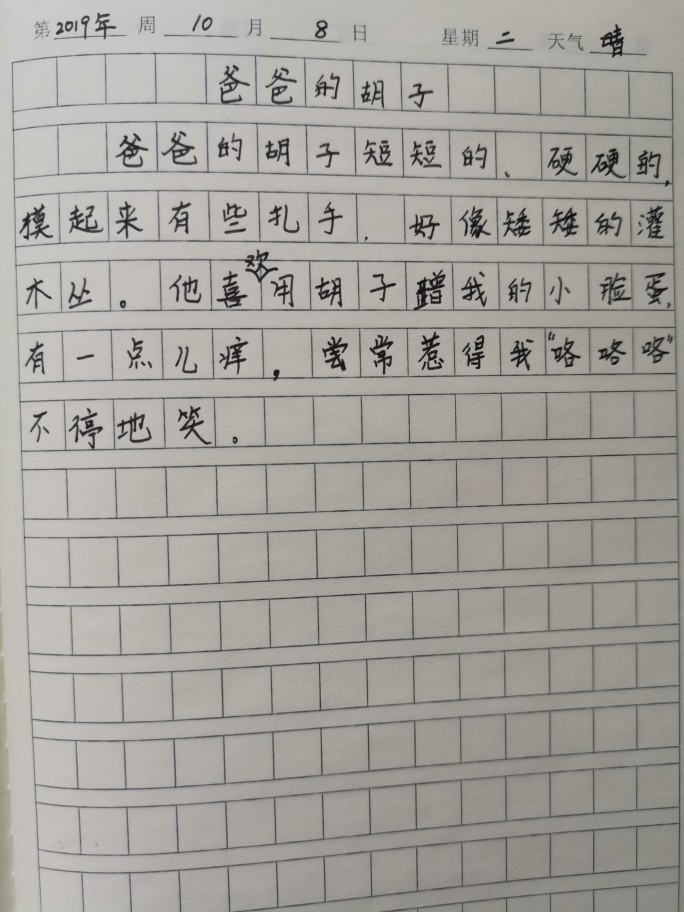 第2019年周 10 月 8 日 星期 二 天气 晴
爸爸的胡子
爸爸的胡子短短的、硬硬的,
摸起来有些扎手,好像矮矮的灌
木丛。他喜欢用胡子蹭我的小脸蛋,
有一点儿痒,尝常惹得我“咯咯咯”
不停地笑。